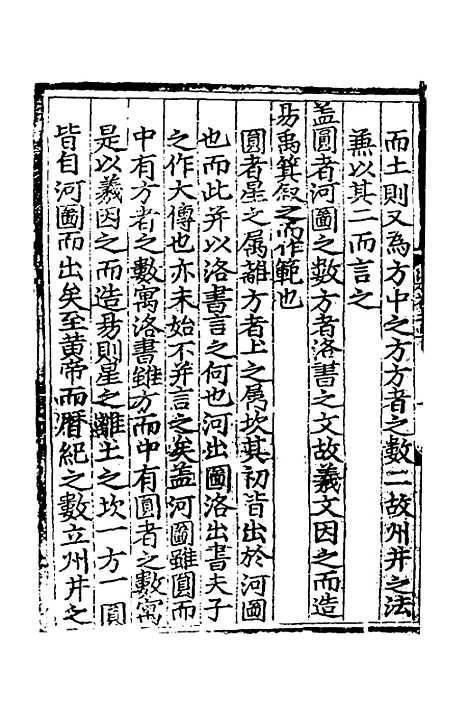 而土則又為方中之方方者之數二故州井之法
兼以其二而言之
盖圓者河圖之數方者洛書之文故羲文因之而造
易禹箕叙之而作範也
圓者星之屬離方者土之屬坎其初皆出於河圖
也而此并以洛書言之何也河出圖洛出書夫子
之作大傳也亦未始不并言之矣盖河圖雖圓而
中有方者之數寓洛書雖方而中有圓者之數寓
是以羲因之而造易則星之離土之坎一方一圓
皆自河圖而出矣至黄帝而曆紀之數立州井之